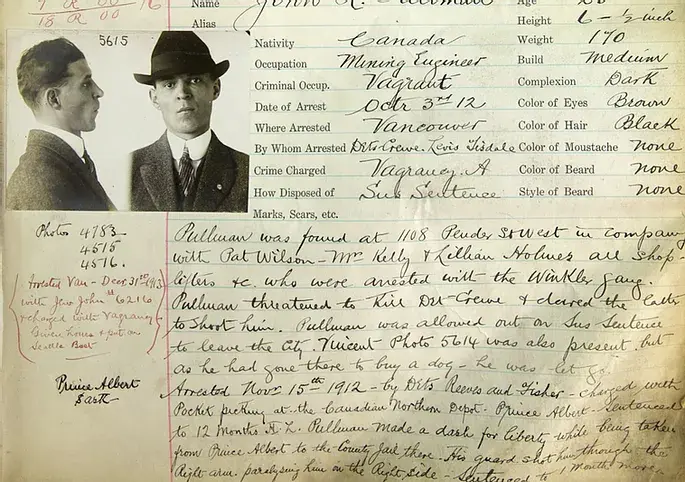 Name John R. Pullman Age
18 R 00
Alias Height 6 - ½ inch
5615
Nativity Canada Weight 170
Occupation Mining Engineer Build Medium
Criminal Occup. Vagrant Complexion Dark
Date of Arrest Octr 3rd 12 Color of Eyes Brown
Where Arrested Vancouver Color of Hair Black
By Whom Arrested Dets Crewe. Levis Tisdale Color of Moustache none
Crime Charged Vagrancy. A Color of Beard none
How Disposed of Sus Sentence Style of Beard none
Marks, Scars, etc.
Photos 4783
4515
4516.
Arrested Van - Decr 31st 1913
with Jew John # 6216
& charged with Vagrancy
Given hours & put on
Seattle Boat
Prince Albert
Sask
Pullman was found at 1108 Pender St West in company
with Pat Wilson - Mr Kelly & Lillian Holmes all shop-
lifters &c. who were arrested with the Winkler gang.
Pullman threatened to Kill Det Crewe & dared the latter
to shoot him. Pullman was allowed out on Sus Sentence
to leave the City. Vincent Photo 5614 was also present but
as he had gone there to buy a dog - he was let go.
Arrested Novr 15th 1912 - by Dets Reeves and Fisher - charged with
Pocket picking at the Canadian Northern Depot - Prince Albert - Sentenced
to 12 months H.L. Pullman made a dash for liberty while being taken
from Prince Albert to the County Jail there. His guard shot him through the
Right arm. paralysing him on the Right Side - Sentenced to 1 month more